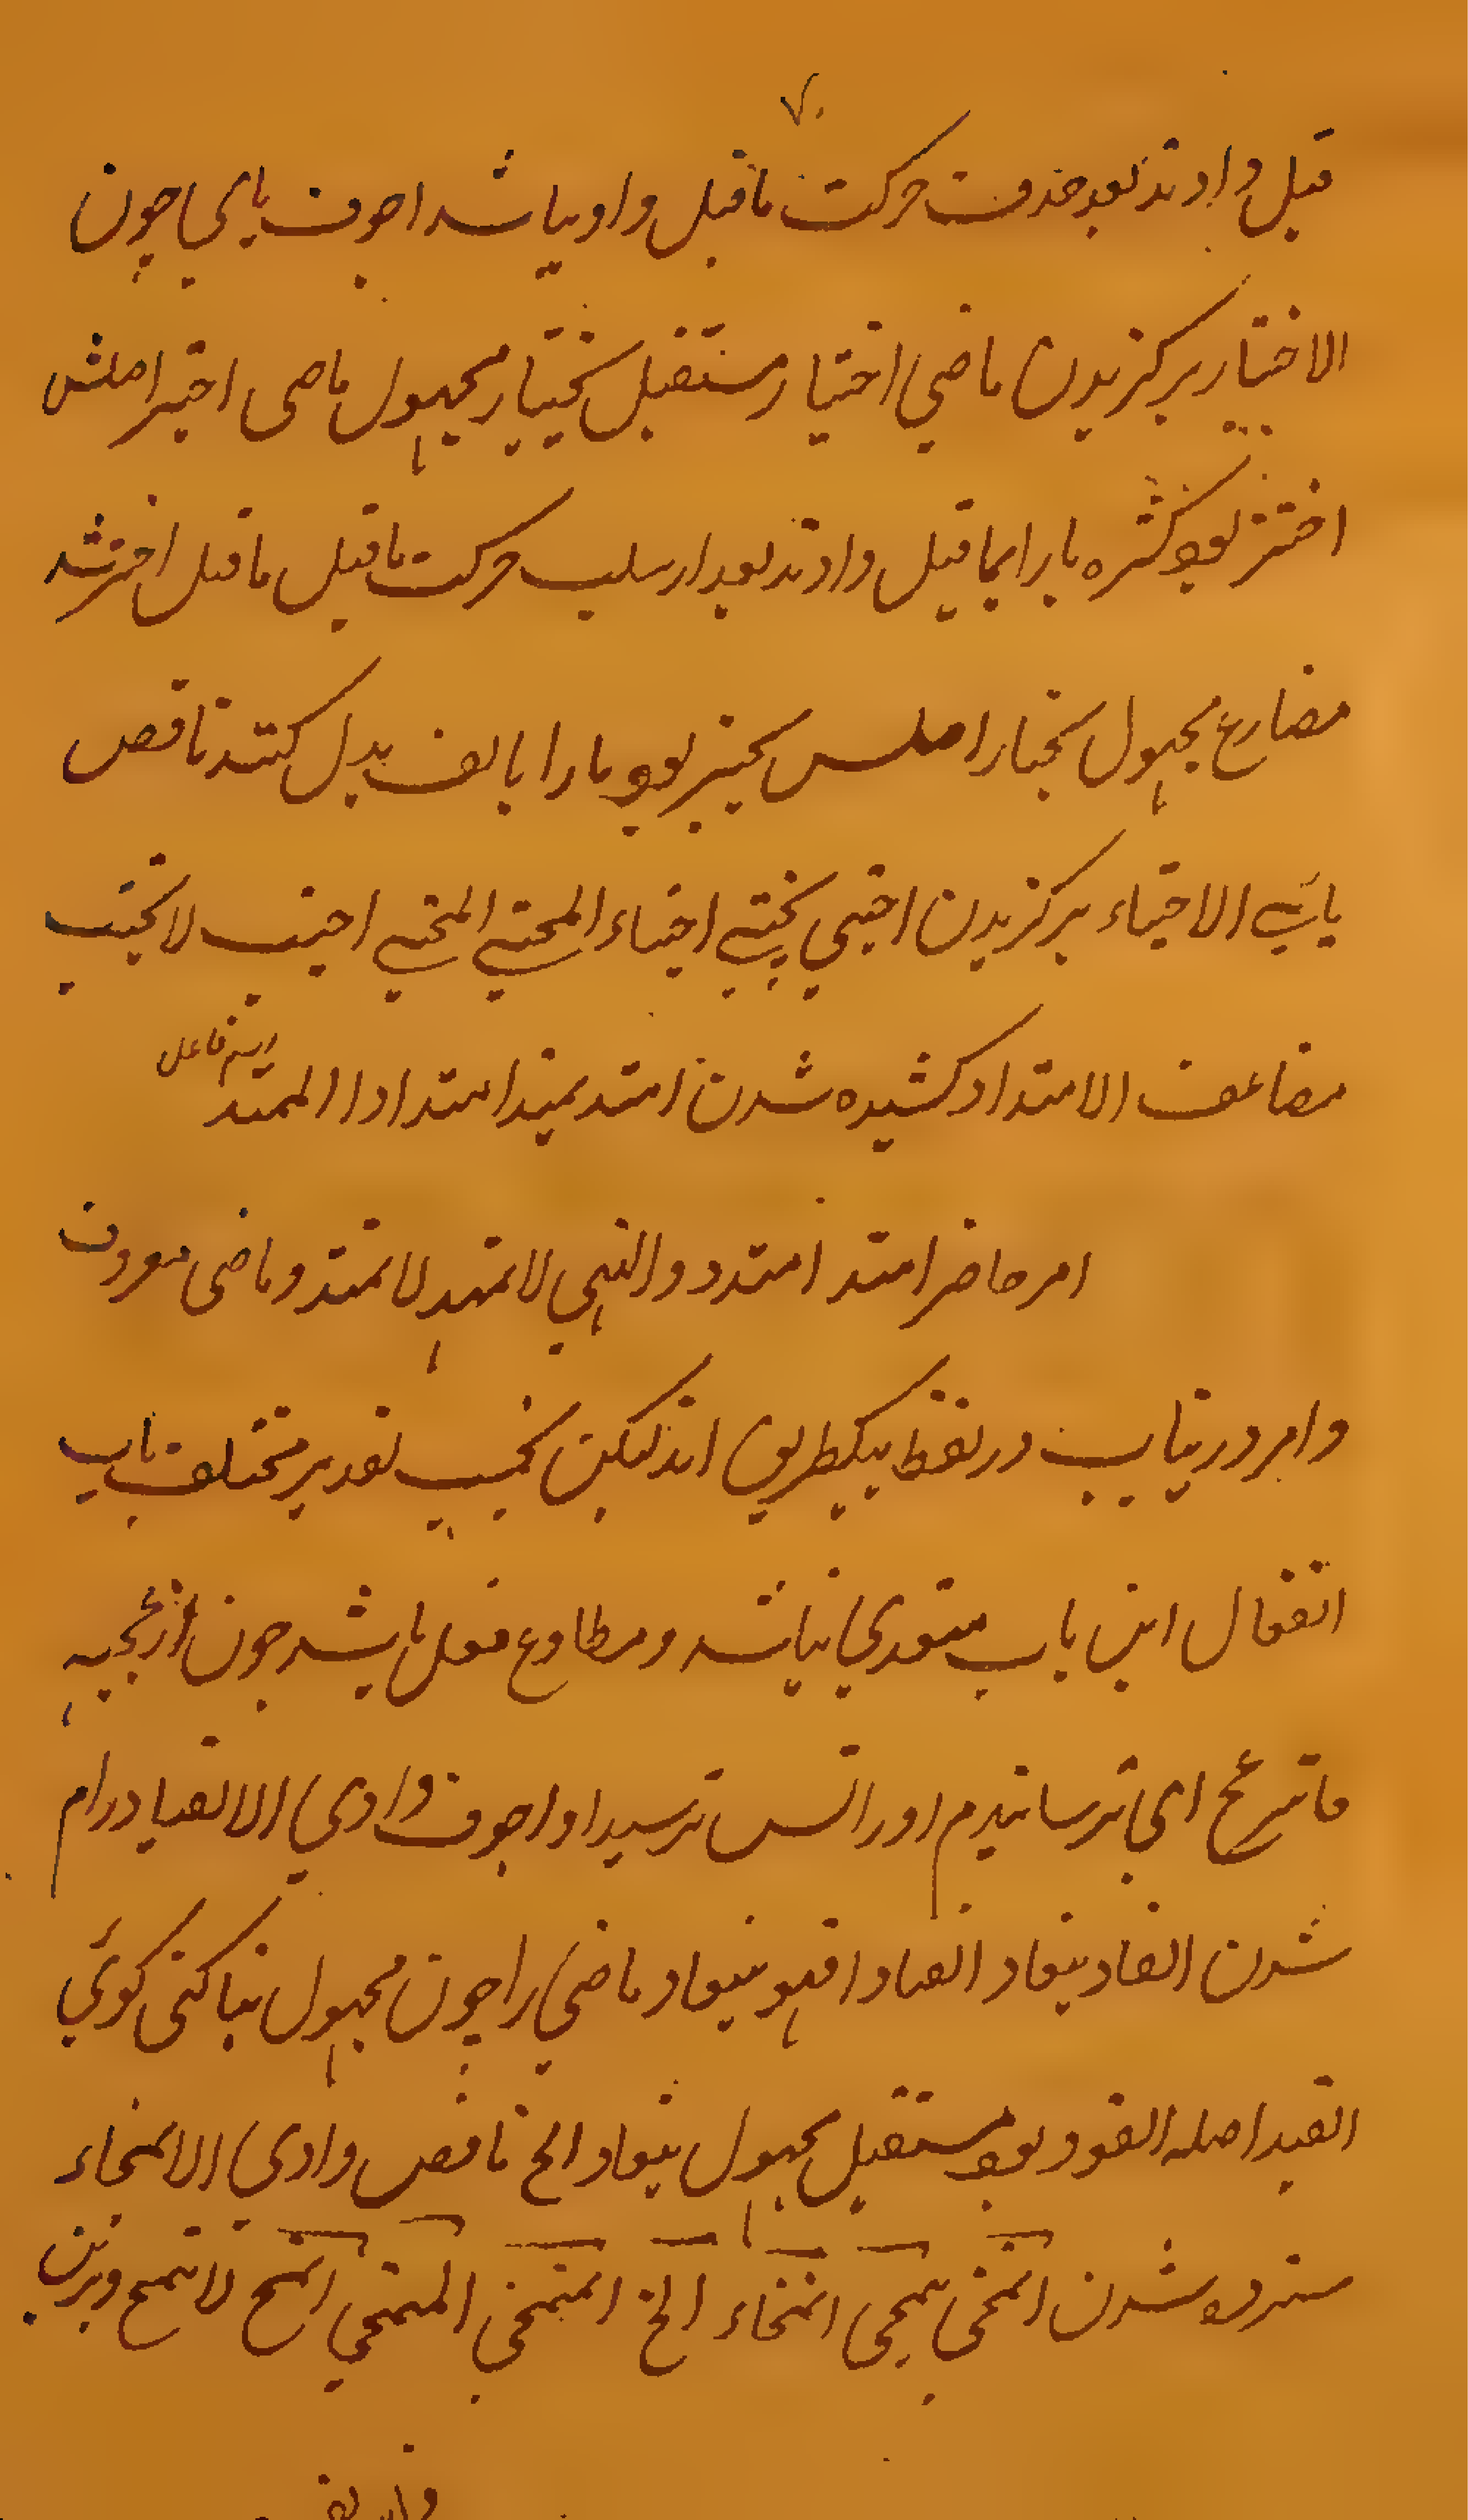 قبل دادند بعد حذف حرکت ماقبل واو یا شد اجوف یای چون
الاختیار برکزیدن ماضی اختیار مستقبل یختیار مجهول ماضی اختیر اصلش
اختیر بود کسره یا را بما قبل دادند بعد از سلب حرکت ماقبل ماقبل اختیر شد
مضارع مجهول یختار اصلش یختیر بود یا را با الف بدل کنند ناقص
یائی الاجتباء برکزیدن اجتبی یجتبی اجتباء المجتبی المجتبی اجتب لا تجتب
مضاعف الامتداد کشیده شدن امتد یمتد امتدادا الممتد اسم فاعل
امر حاضر امتد امتدد والنهی لا تمتد لا تمتدد وماضی معروف
وامر در تای در لفظ بیکطریق اند لیکن بحسب تقدیر مختلف باب
انفعال این باب متعدی نباشد ومطاوع فعل باشد چون ازعجته
فانزعج ای ترسانیدم اورا پس ترسید او اجوف وادی الانقیاد رام
شدن انقاد ینقاد انقیادا فهو منقاد ماضی را چون مجهول بنا کنی کوئی
انقید اصله انقود بود مستقبل مجهول ینقاد الخ ناقص وادی الانمحاء
سترده شدن انمحی ینمحی انمحاء الخ المنمحی المنمحی انمح لا تنمح وبرین